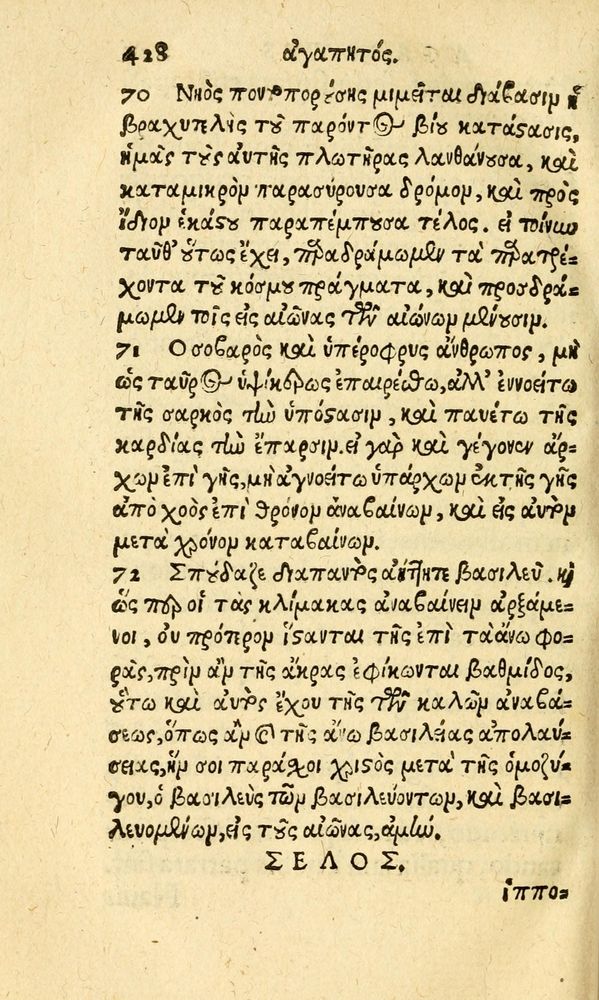 428 ἀγαπητός.
70 Νηὸς ποντοπορούσης μιμεῖται διάβασιμ ἡ
βραχυπλὴς τοῦ παρόντος βίου κατάστασις,
ἡμᾶς τοὺς αὐτῆς πλωτῆρας λανθάνουσα, καὶ
καταμικρὸμ παρασύρουσα δρόμομ, καὶ πρὸς
ἴδιομ ἑκάστου παραπέμπουσα τέλος. εἰ τοίνυν
ταῦθ' οὕτως ἔχει, παραδράμωμεν τὰ παρατρέ=
χοντα τοῦ κόσμου πράγματα, καὶ προσδρά=
μωμεν τοῖς εἰς αἰῶνας τῶν αἰώνωμ μένουσιμ.
71 Ο σοβαρὸς καὶ ὑπέροφρυς ἄνθρωπος, μὴ
ὡς ταῦρος ὑψίκερως ἐπαιρέσθω, ἀλλ' ἐννοείτω
τῆς σαρκὸς τὴν ὑπόστασιμ, καὶ παυέτω τῆς
καρδίας τὴν ἔπαρσιμ. εἰ γὰρ καὶ γέγονεν ἄρ=
χωμ ἐπὶ γῆς, μὴ ἀγνοείτω ὑπάρχωμ ἐκ τῆς γῆς
ἀπὸ χοὸς ἐπὶ θρόνομ ἀναβαίνωμ, καὶ εἰς αὐτὸμ
μετὰ χρόνομ καταβαίνωμ.
72 Σπούδαζε διαπαντὸς ἀήττητε βασιλεῦ. καὶ
ὥσπερ οἱ τὰς κλίμακας ἀναβαίνειμ ἀρξάμε=
νοι, οὐ πρότερομ ἵστανται τῆς ἐπὶ τὰ ἄνω φο=
ρᾶς, πρὶμ ἂμ τῆς ἄκρας ἐφίκωνται βαθμίδος,
οὕτω καὶ αὐτὸς ἔχου τῆς τῶν καλῶμ ἀναβά=
σεως, ὅπως ἂμ καὶ τῆς ἄνω βασιλείας ἀπολαύ=
σειας, ἥμ σοι παράσχοι χριστὸς μετὰ τῆς ὁμοζύ=
γου, ὁ βασιλεὺς τῶμ βασιλευόντωμ, καὶ βασι=
λευομένωμ, εἰς τοὺς αἰῶνας, ἀμήν.
ΣΕΛΟΣ.
ἱππο=